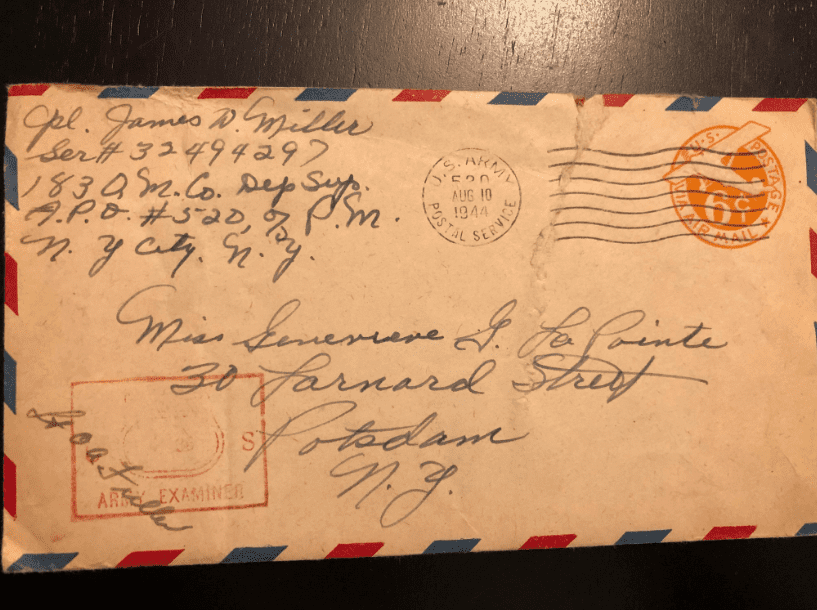 Cpl. James W. Miller
Ser# 32494297
183 Q M. Co. Dep Sup.
A.P.O. #520, % P.M.
N. Y City, N. Y.
U.S. ARMY
520
AUG 10
1944
POSTAL SERVICE
U.S. POSTAGE
6¢
VIA AIR MAIL
Miss Genevieve G. La Pointe
30 Larnard Street
Potsdam
N. Y.
S
ARMY EXAMINER